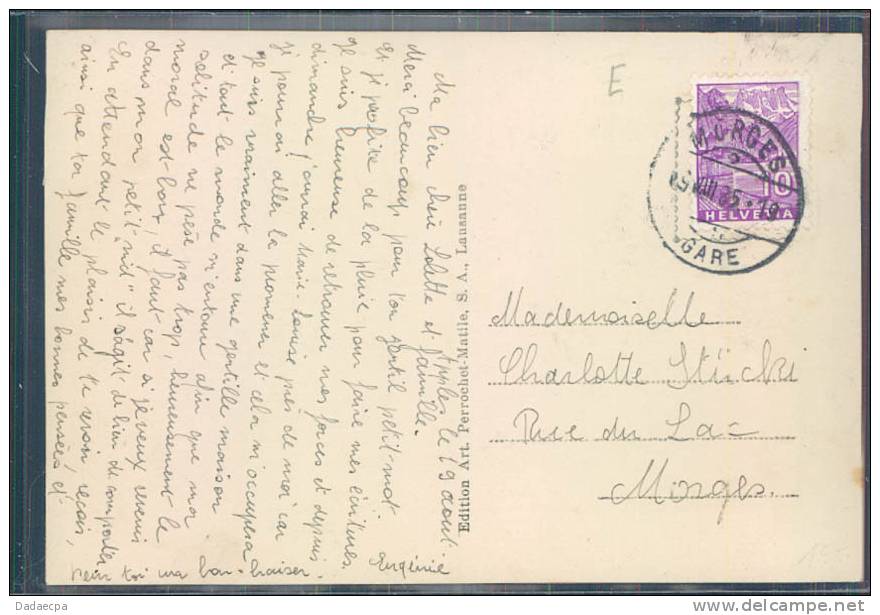 Apples, le 19 août.
Ma bien chère Lolette et famille.
Merci beaucoup pour ton gentil petit mot.
Et je profite de la pluie pour faire mes écritures.
Je suis heureuse de retrouver mes forces et depuis
dimanche j'aurai Marie-Louise près de moi car
je pourrai aller la promener et cela m'occupera
Je suis vraiment dans une gentille maison
et tout le monde m'entoure afin que ma
solitude ne pèse pas trop, heureusement le
moral est bon, il faut car si je veux revenir
dans mon petit "nid" il s'agit de bien se comporter
En attendant le plaisir de te revoir, reçois,
ainsi que ta famille mes bonnes pensées et
pour toi un bon baiser. Eugénie
Edition Art. Perrochet-Matile, S. A., Lausanne
E
MORGES
19 VIII 35 · 19
GARE
10
HELVETIA
Mademoiselle
Charlotte Stücki
Rue du Lac
Morges.
Dadaecpa
www.delcampe.net